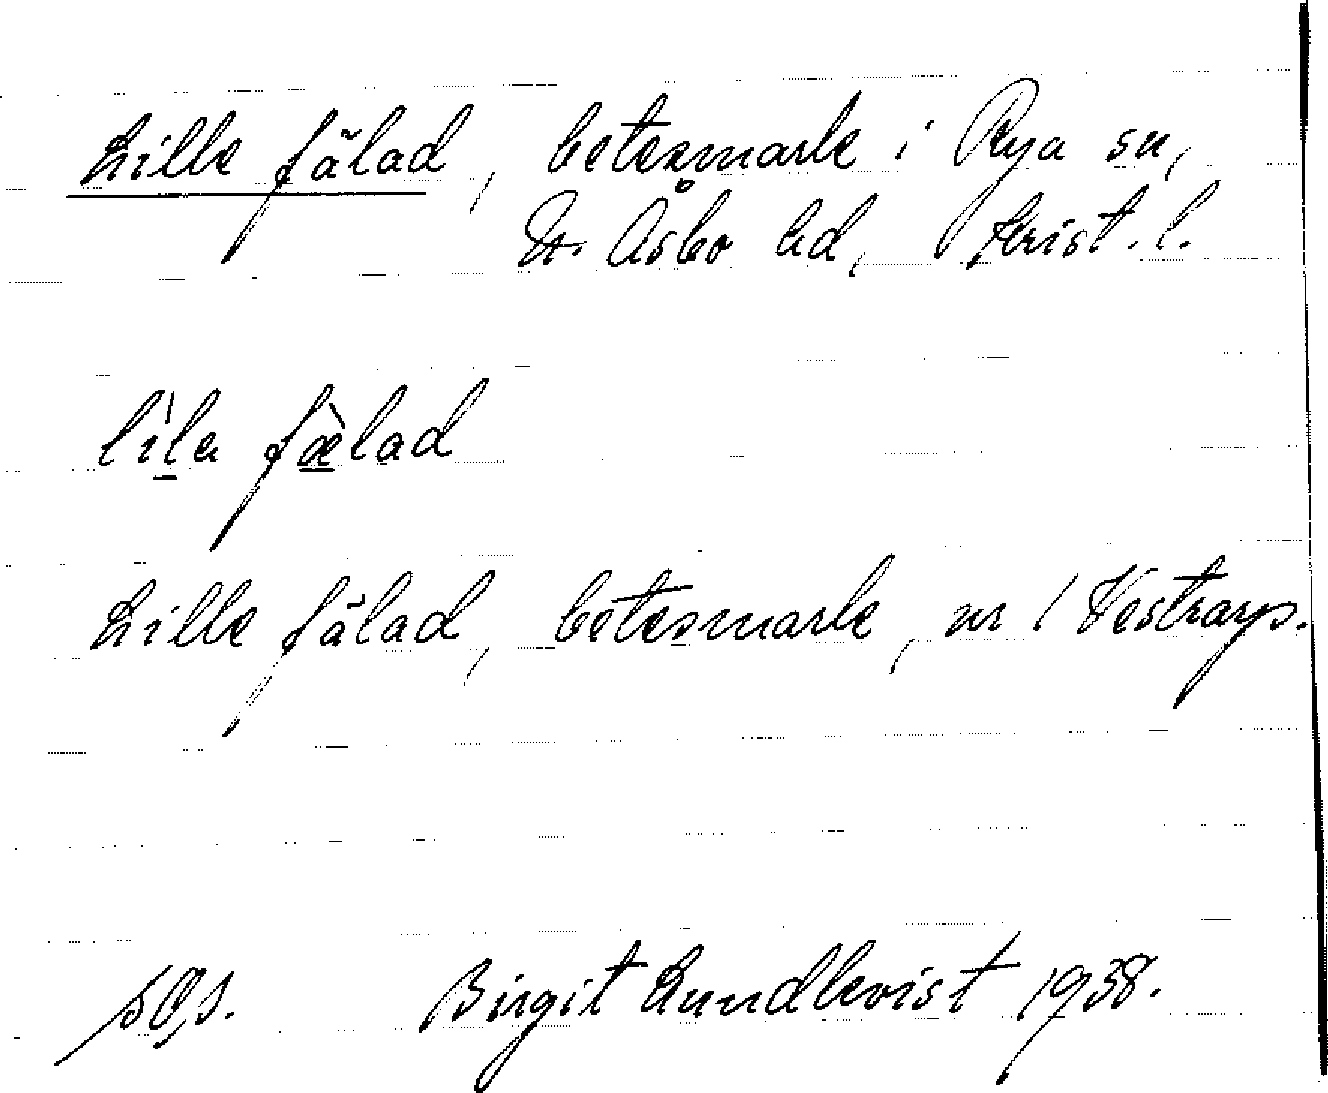 Lille fälad, betesmark i Rya sn,
N. Åsbo hd, Krist. l.
lìla fæ̀lad
Lille fälad, betesmark, nr 1 Västrarp.
Birgit Lundkvist 1938.